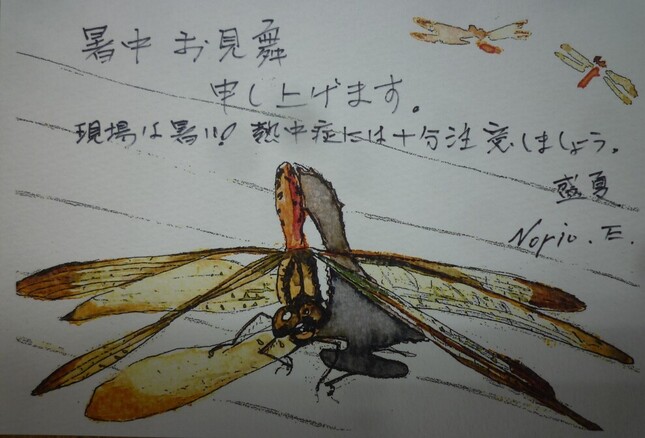 暑中お見舞
申し上げます。
現場は暑い! 熱中症には十分注意しましょう。
盛夏
Norio. E.